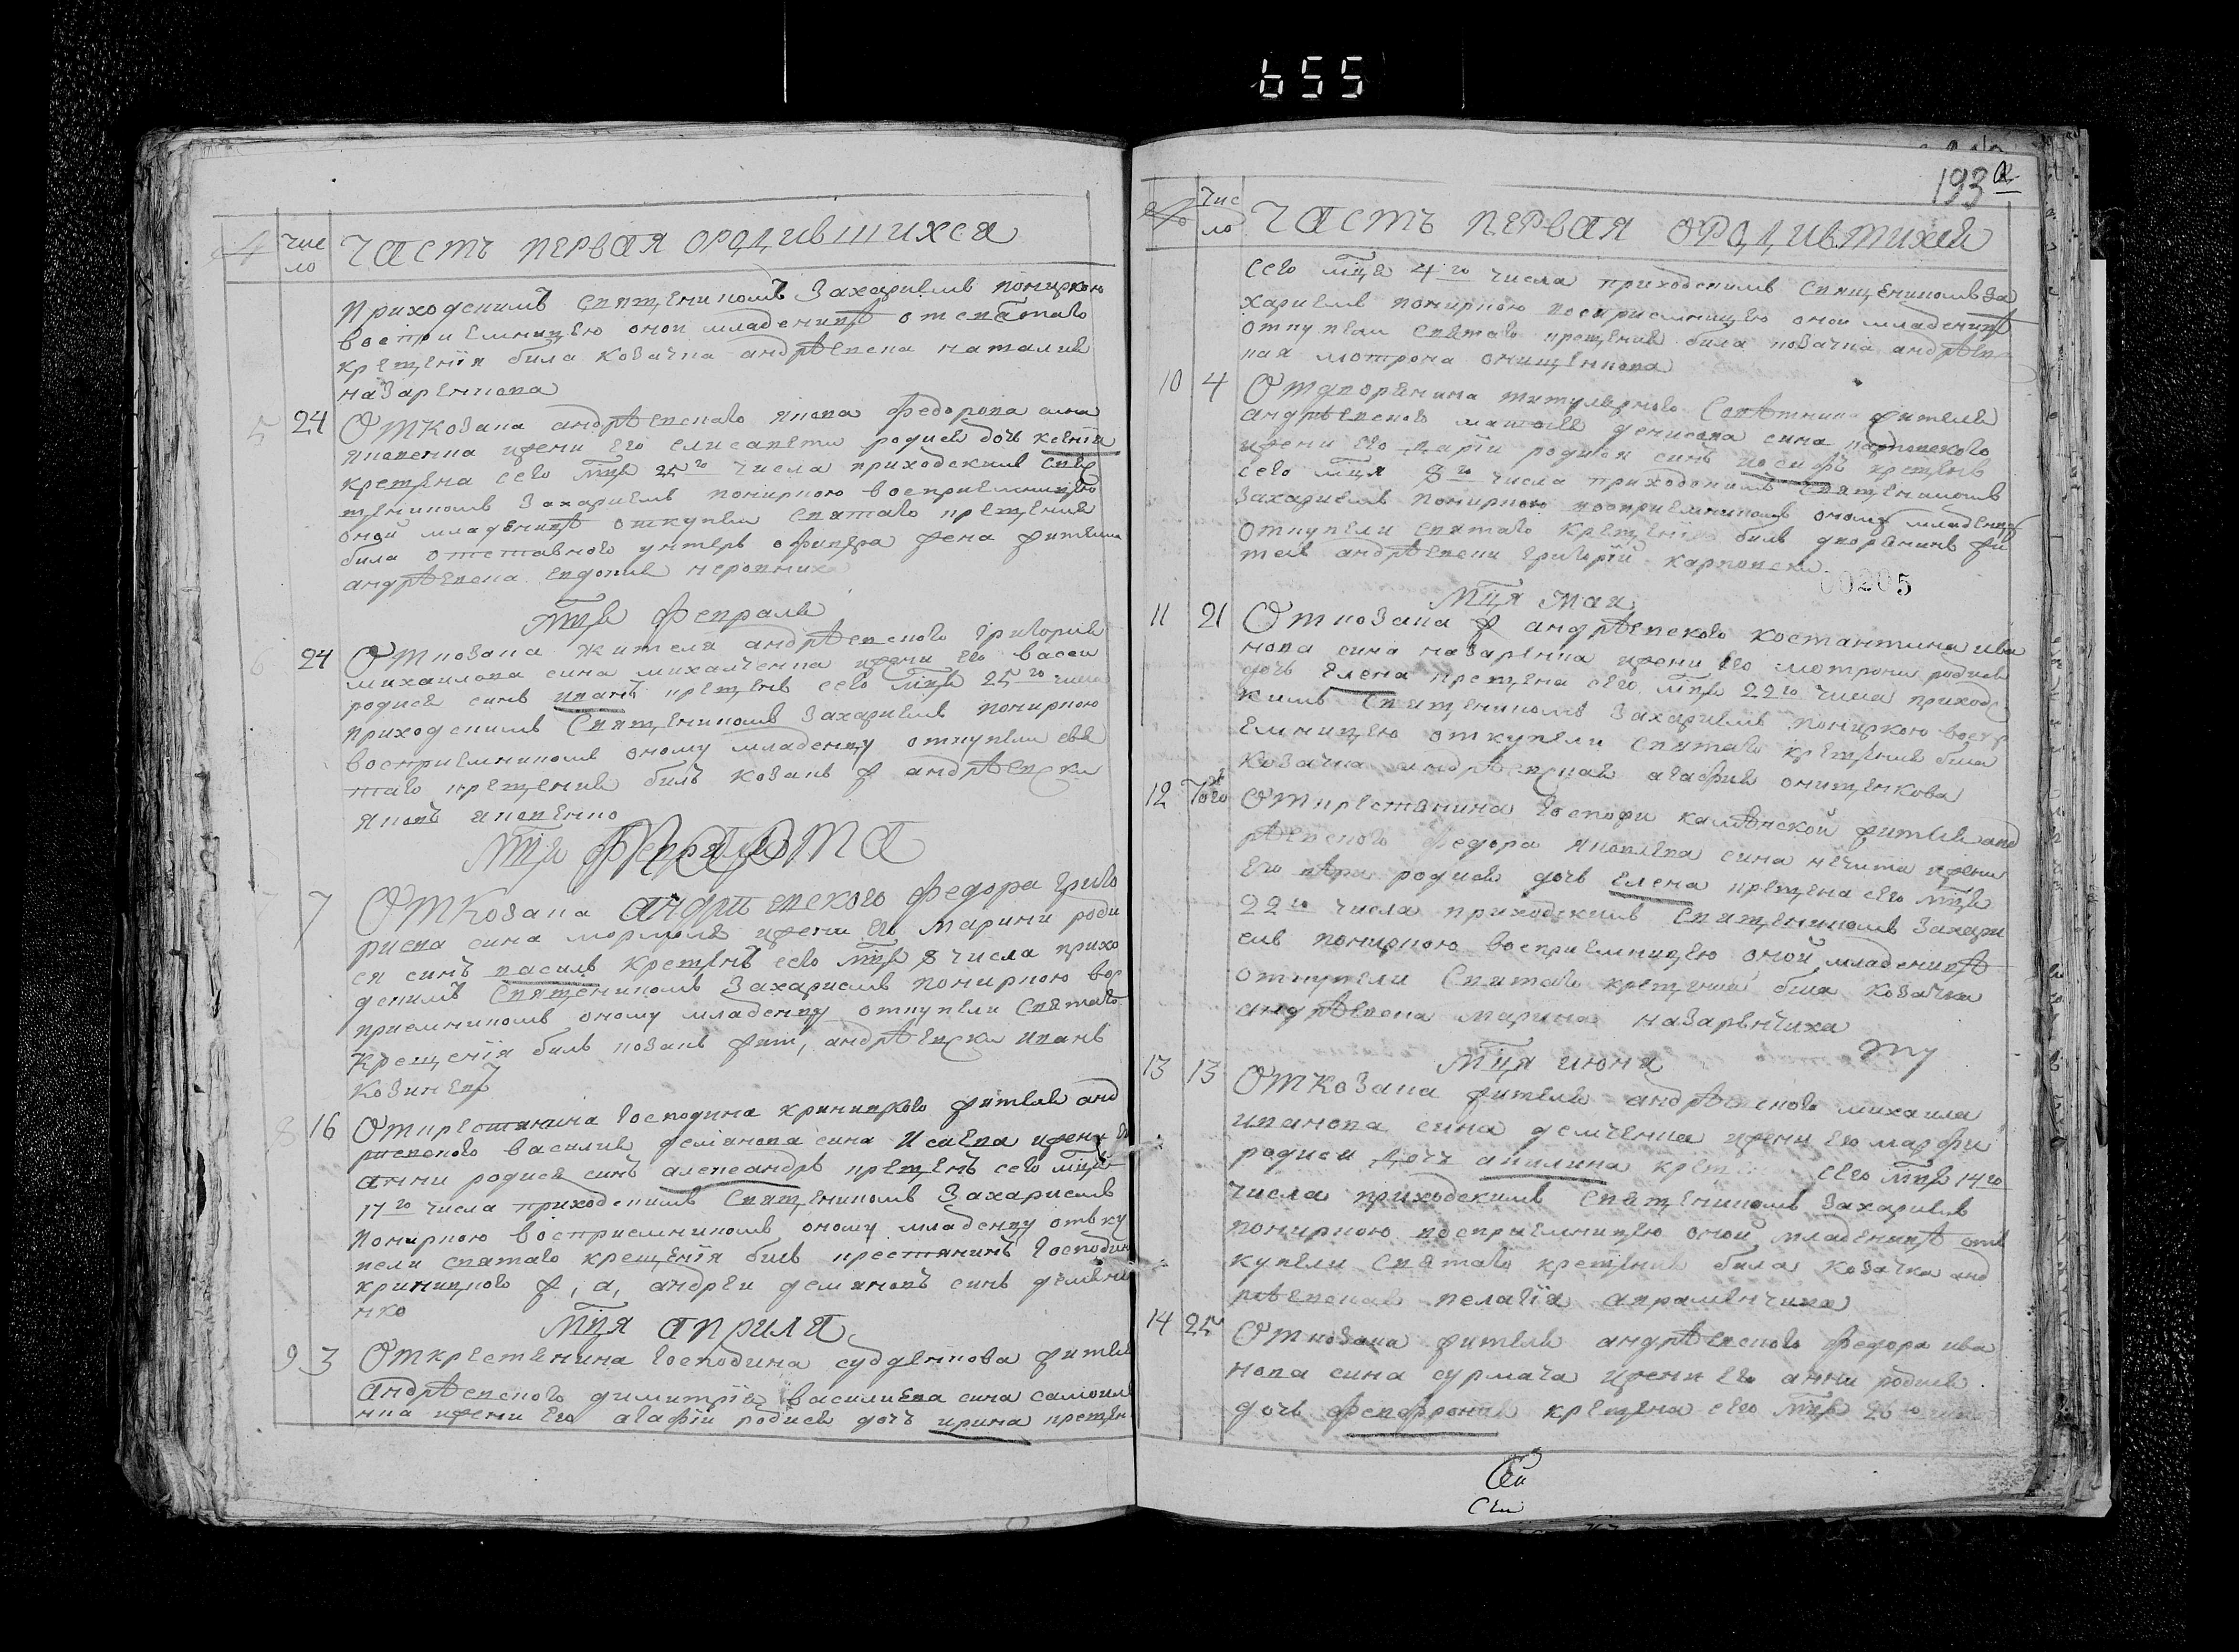 655
№ Чис
ло ЧАСТЬ ПЕРВАЯ ОРОДИВШИХСЯ
приходскимъ священикомъ Захариемъ
восприемницею оной младеницѣ отсвѣтаго
крещенїя била козачка андрѣевска наталия
назаренкова
5 24 Откозака андрѣевскаго якова федорова сина
яковенка ижени его елисавети родися дочь ксенїя
крещена сего мця 25го числа приходскимъ свя
щеникомъ Захариемъ восприемницею
оной младеницѣ откупели святаго крещения
била отставного унтеръ офицера жена жителка
андрѣевска евдокия
мця февраля
6 24 Откозака жителя андрѣевского григория
михаилова сина михалченка ижени его васси
родися синъ иванъ крещенъ сего мця 25го числа
приходскимъ священикомъ Захариемъ
восприемникомъ оному младенцу откупели свя
таго крещения билъ козакъ ж андрѣевски
яковъ яковенко
мця МАРТА
7 7 Откозака андриевского федора григо
риева сина ижени его марини роди
ся синъ василь крещенъ сего мця 8 числа прихо
дскимъ священикомъ Захариемъ вос
приемникомъ оному младенцу откупели святаго
крещенїя билъ козакъ жит, андрѣевски иванъ
козинецъ
8 16 Открестянина господина криницкого жителя анд
риевского василия демянова сина исаева ижени его
анни родися синъ александръ крещенъ сего мця
17го числа приходскимъ священикомъ Захариемъ
восприемникомъ оному младенцу отъку
пели святаго крещенїя билъ крестянинъ господина
криницкого ж, а, андреи демяновъ синъ демяне
нко
мця априля
9 3 Открестянина господина судденкова жителя
андрѣевского димитрїя василиева сина самоиле
нка ижени его агафїи родися дочъ ирина крещен
193а
№ Чис
ло ЧАСТЬ ПЕРВАЯ ОРОДИВШИХСЯ
сего мця 4го числа приходскимъ священикомъ За
хариемъ восприемницею оной младеницѣ
откупели святаго крещения била козачка андрѣев
ская мотрона онищенкова
10 4 Отдворянина титулярного совѣтника жителя
андрѣевского матвея денисова сина
ижени его дарїи родися синъ иосифъ крещенъ
сего мця 8го числа приходскимъ священикомъ
Захариемъ восприемникомъ оному младенцу
откупели святаго крещенїя билъ дворянинъ жи
тель андрѣевски григорїй
00205
мця маи
11 21 Откозака ж андрѣевского костантина ива
нова сина назаренка ижени его мотрони родися
дочь елена крещена сего мця 22го числа приход
кимъ священикомъ Захариемъ воспр
емницею откупели святаго крещения била
козачка андрѣевская агафия онищенкова
12 Того Открестянина господи каменской жителя анд
рѣевского федора яковлева сина ижени
его родися дочь елена крещена сего мця
22го числа приходскимъ священикомъ Захари
емъ восприемницею оной младеницѣ
откупели святаго крещения била козачка
андрѣевска марина назаренчиха
мця июня
13 13 Откозака жителя андрѣевского михаила
иванова сина демченка ижени его марфи
родися дочъ акилина сего мця 14го
числа приходскимъ священикомъ Захариемъ
восприемницею оной младеницѣ отъ
купели святаго крещения била козачка анд
рѣевская пелагїя авраменчиха
14 25 Откозака жителя андрѣевского федора ива
нова сина сурмача ижени его анни родися
дочь февронія крещена сего мця 26го числа